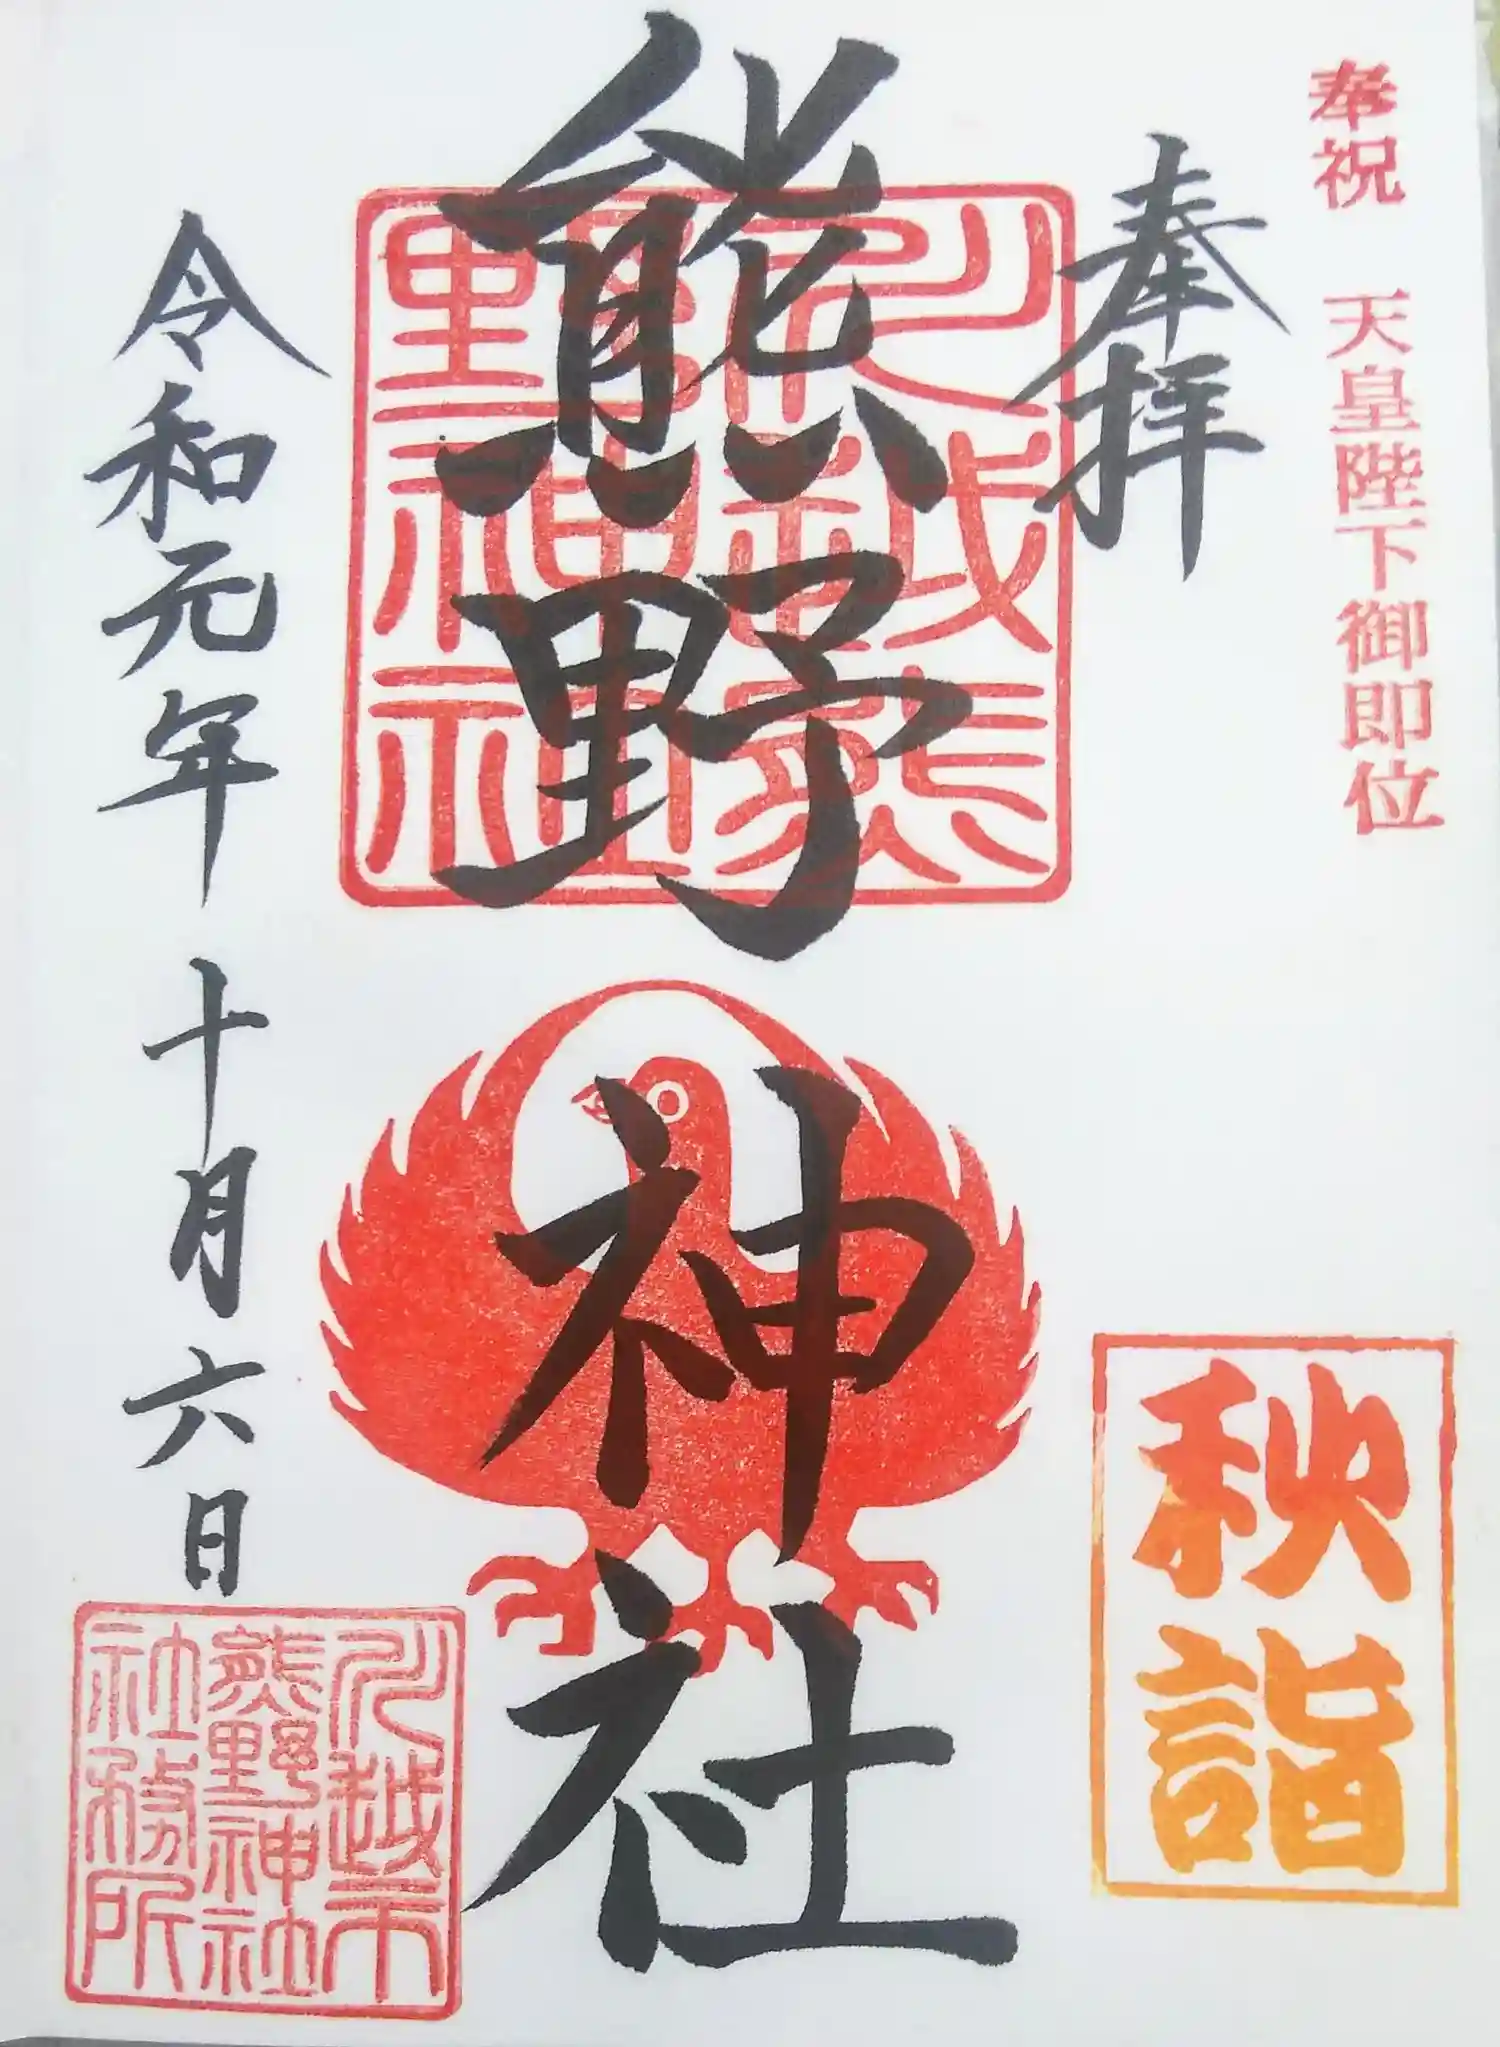 奉祝 天皇陛下御即位
奉拝
秋詣
川越熊
野神社
熊野神社
令和元年 十月六日
川越市
熊野神社
社務所